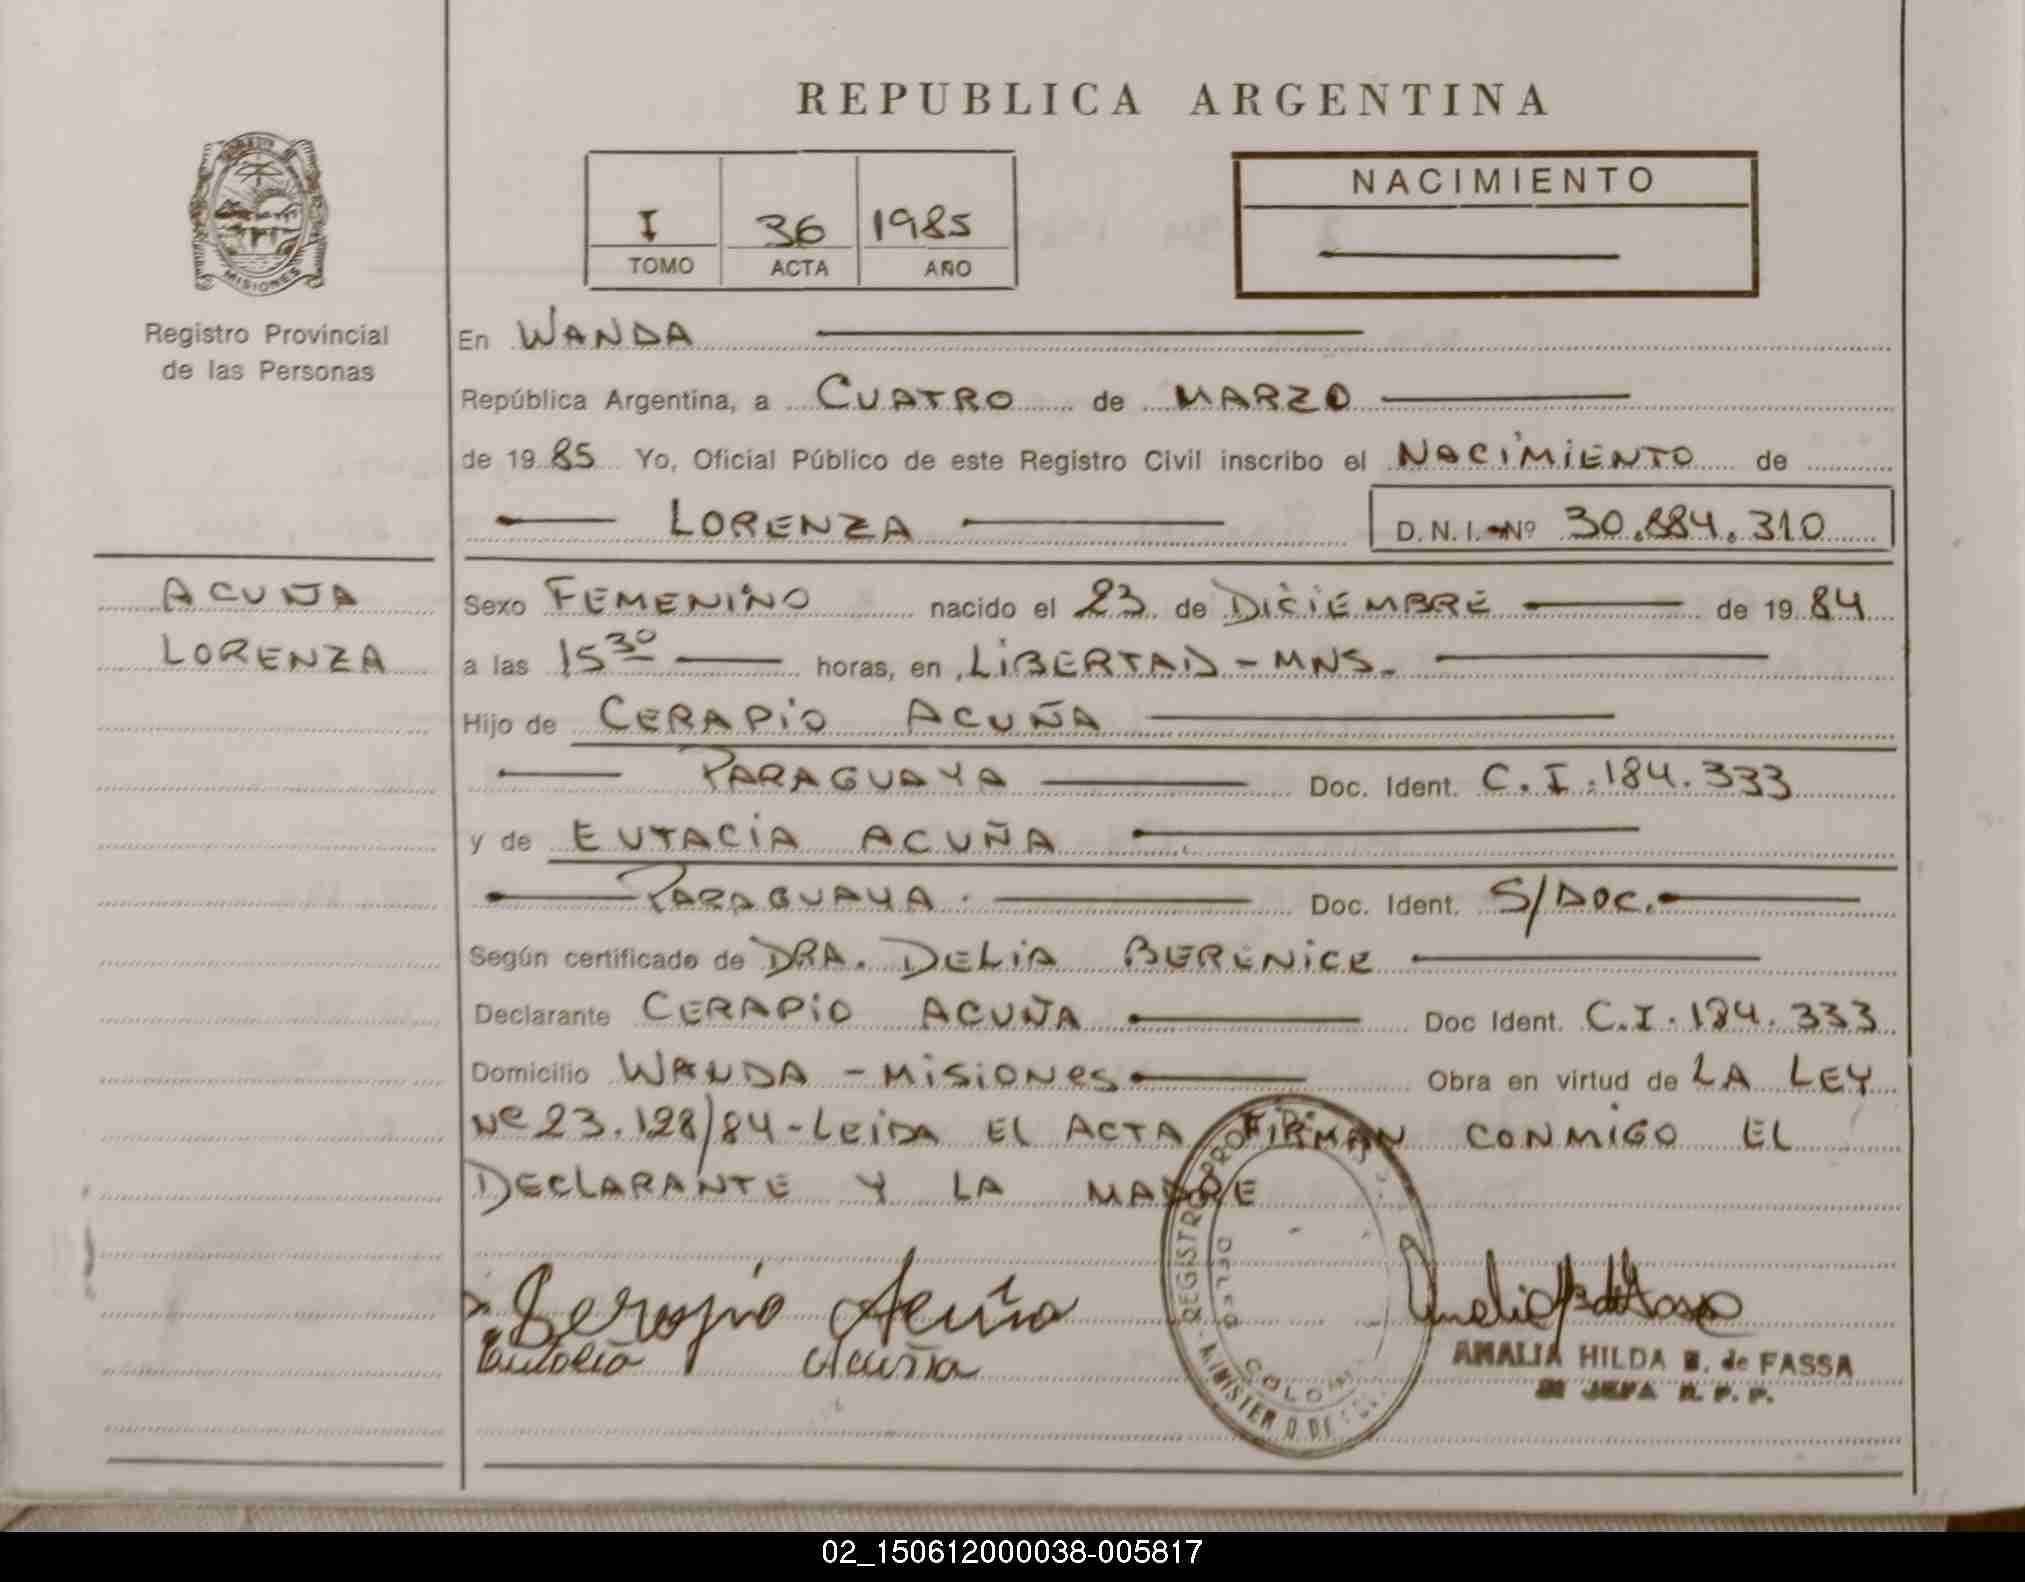 REPUBLICA ARGENTINA
I 36 1985
TOMO ACTA AÑO
NACIMIENTO
MISIONES
Registro Provincial
de las Personas
ACUÑA
LORENZA
En WANDA
República Argentina, a CUATRO de MARZO
de 1985 Yo, Oficial Público de este Registro Civil inscribo el NACIMIENTO de
LORENZA D.N.I. Nº 30.884.310
Sexo FEMENINO nacido el 23 de DICIEMBRE de 1984
a las 15 30 horas, en LIBERTAD - MNS.
Hijo de CERAPIO ACUÑA
PARAGUAYA Doc. Ident. C.I. 184.333
y de EUTACIA ACUÑA
PARAGUAYA. Doc. Ident. S/DOC.
Según certificado de DRA. DELIA BERENICE
Declarante CERAPIO ACUÑA Doc Ident. C.I. 184.333
Domicilio WANDA - MISIONES Obra en virtud de LA LEY
Nº 23.128/84 - LEIDA EL ACTA FIRMAN CONMIGO EL
DECLARANTE Y LA MADRE
Serapio Acuña
Eutacia Acuña
REGISTRO PRO
DELEG
COLO
MINISTERIO DE
AMALIA HILDA B. de FASSA
JEFA R. P. P.
02_150612000038-005817